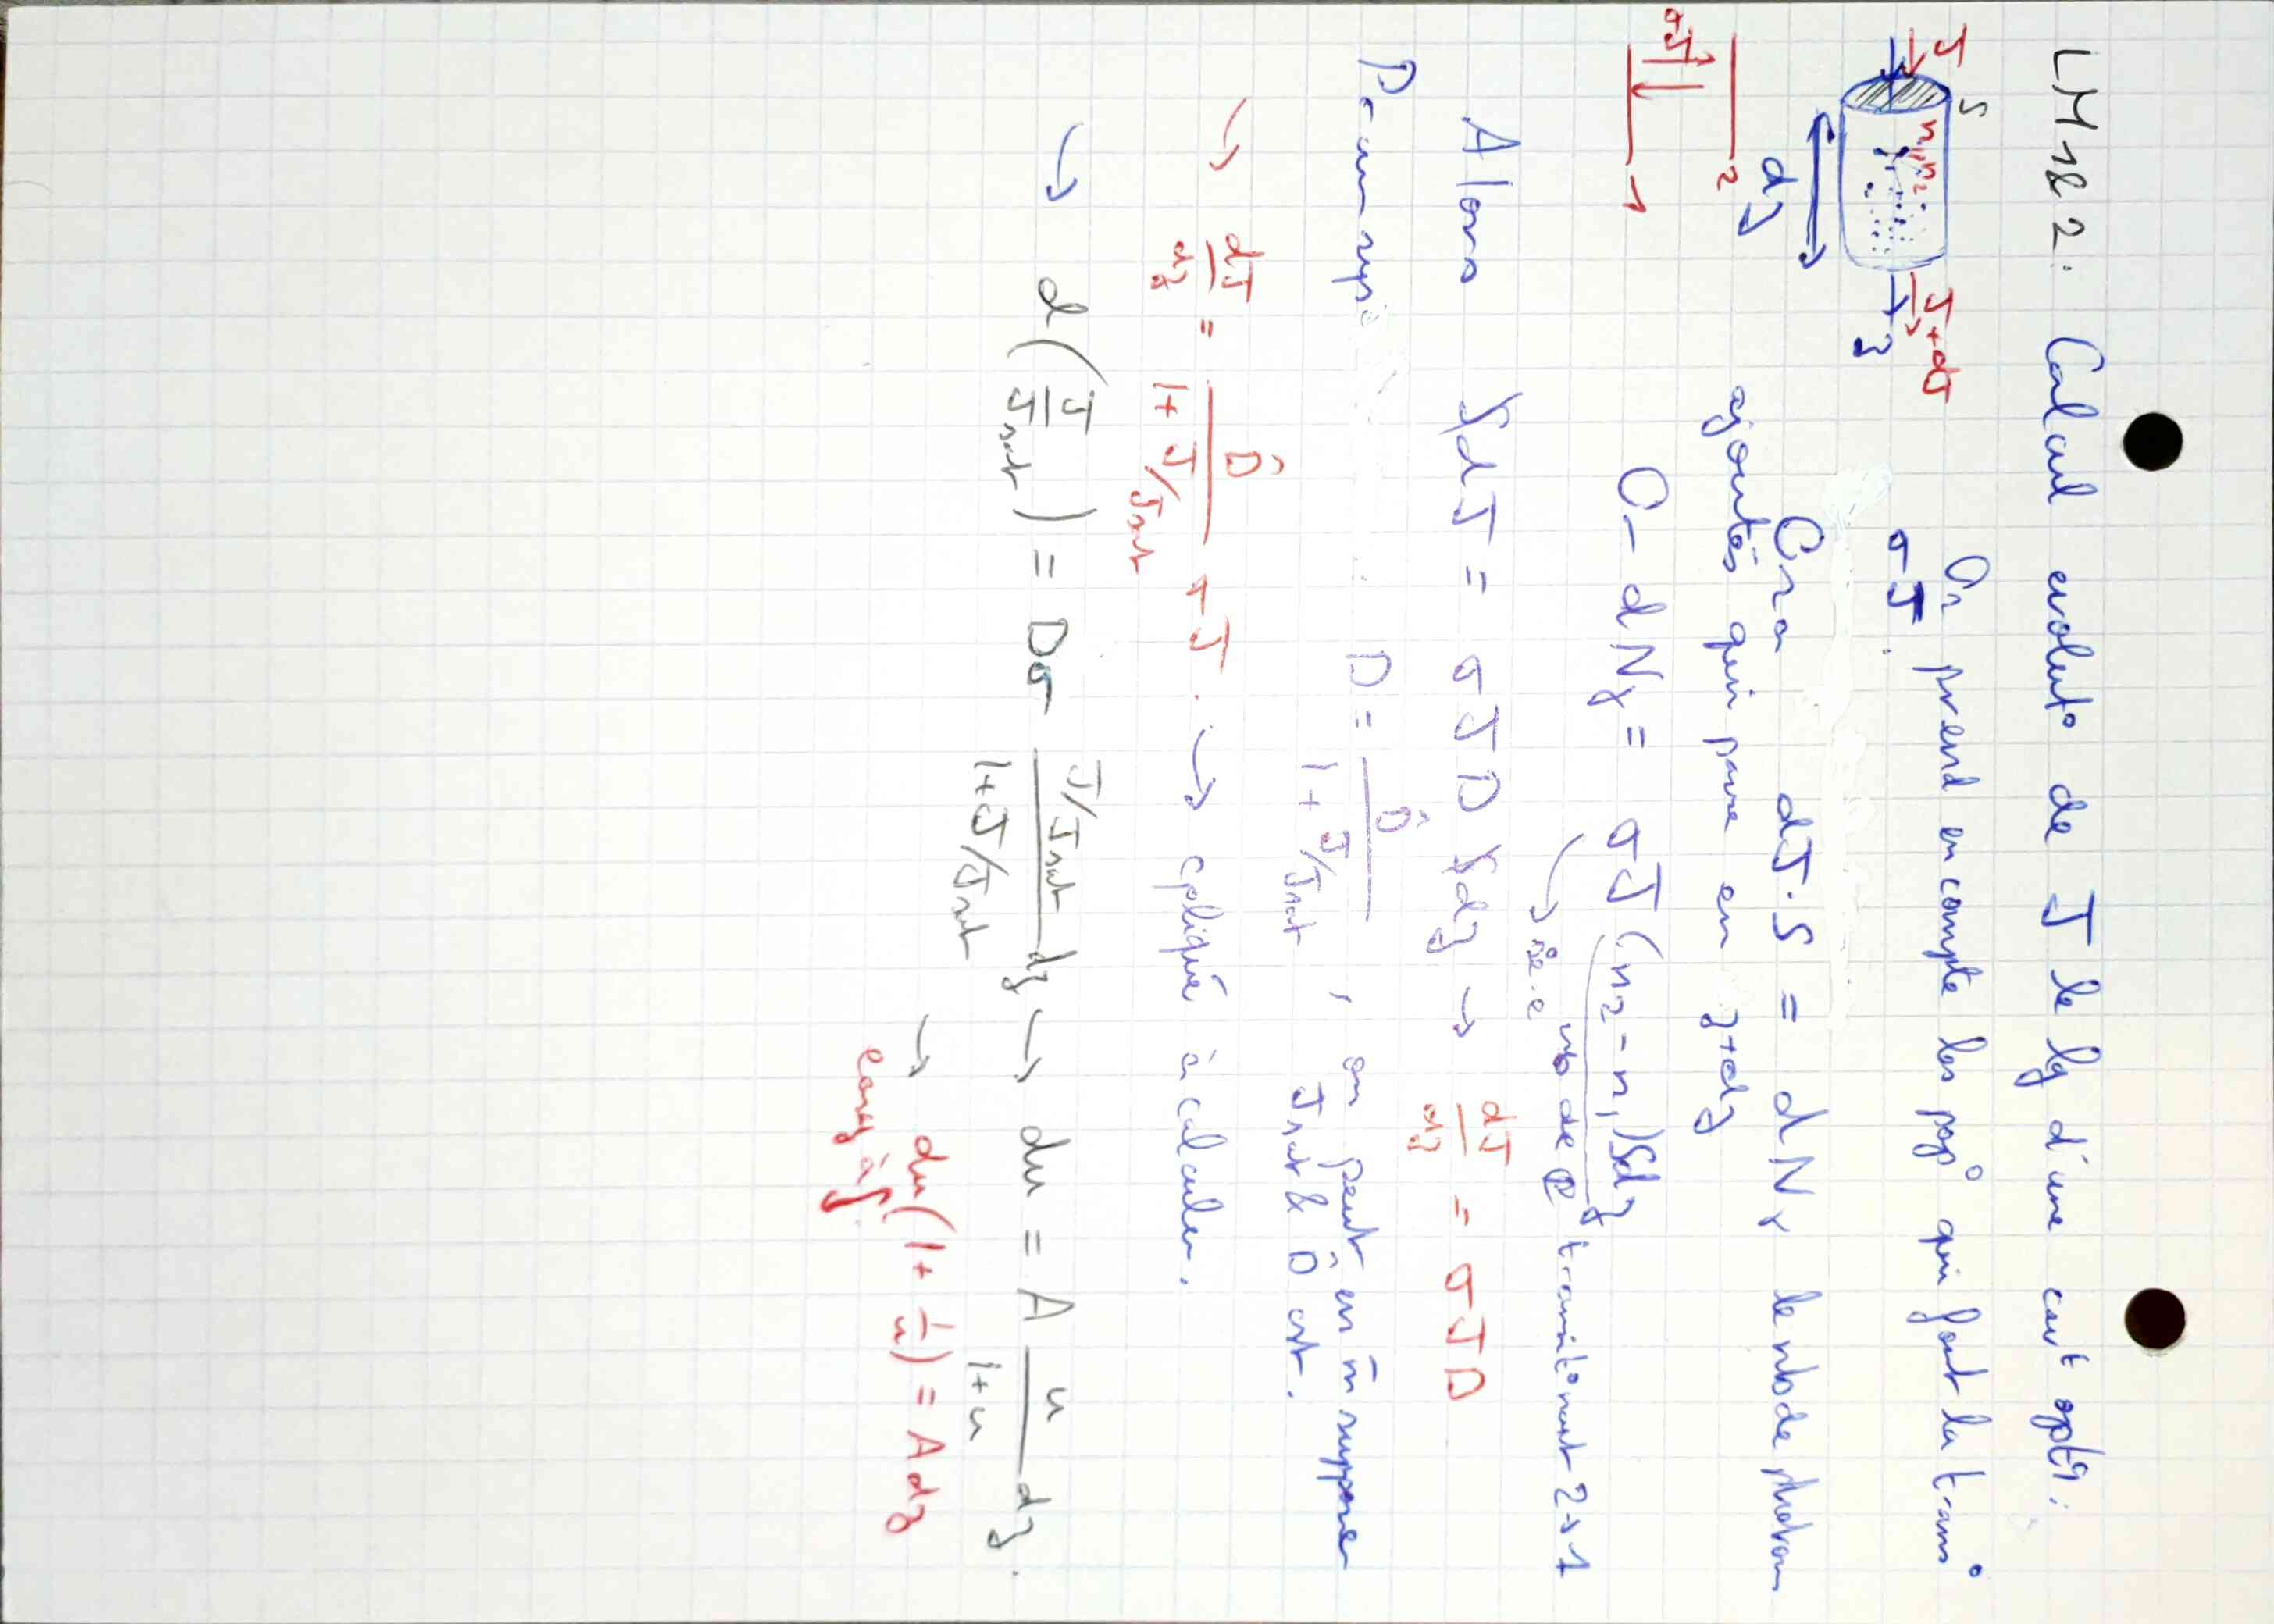 LM42 2: Calcul evolut° de J le lg d'une cav^t opt^q:
J S J+dJ
n₁, n₂
z
dz
On prend en compte les pop° qui font la trans°
σJ.
On a dJ·S = dNγ le nb de photons
ajoutés qui passe en z+dz
2
σJ
1
O- dNγ = σJ(n₂-n₁)Sdz
nb de transit° net 2→1
Alors SdJ = σJD Sdz → dJ/dz = σJD
D = D̂/(1+J/Jsat), on peut en m̄ supposer
Jsat & D̂ cst.
→ dJ/dz = D̂/(1+J/Jsat) σJ. → compliqué à calculer.
→ d(J/Jsat) = Dσ (J/Jsat)/(1+J/Jsat) dz → du = A u/(1+u) dz.
→ du(1+1/u) = A dz
easy à ∫